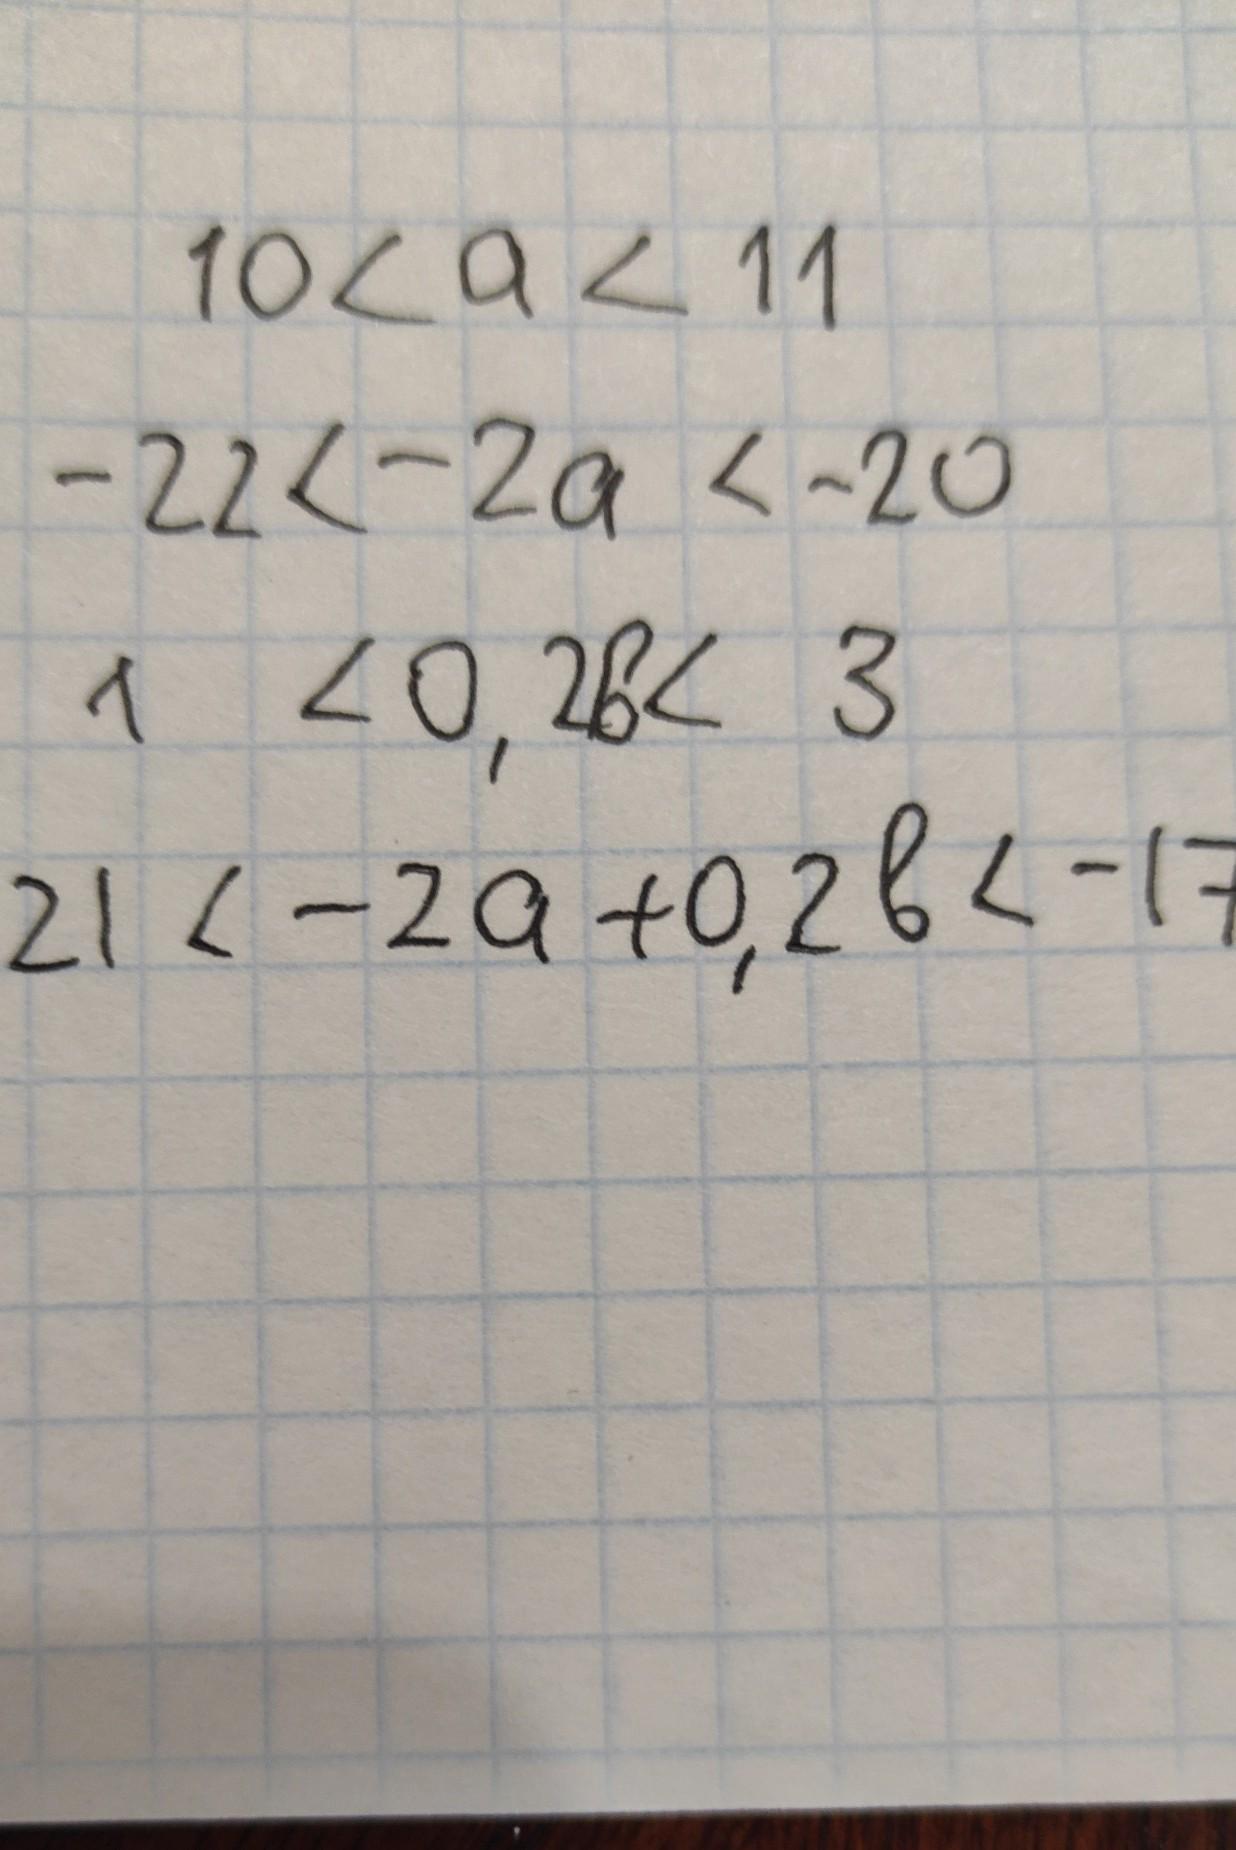 10 < a < 11
-22 < -2a < -20
1 < 0,2в < 3
21 < -2a + 0,2в < -17